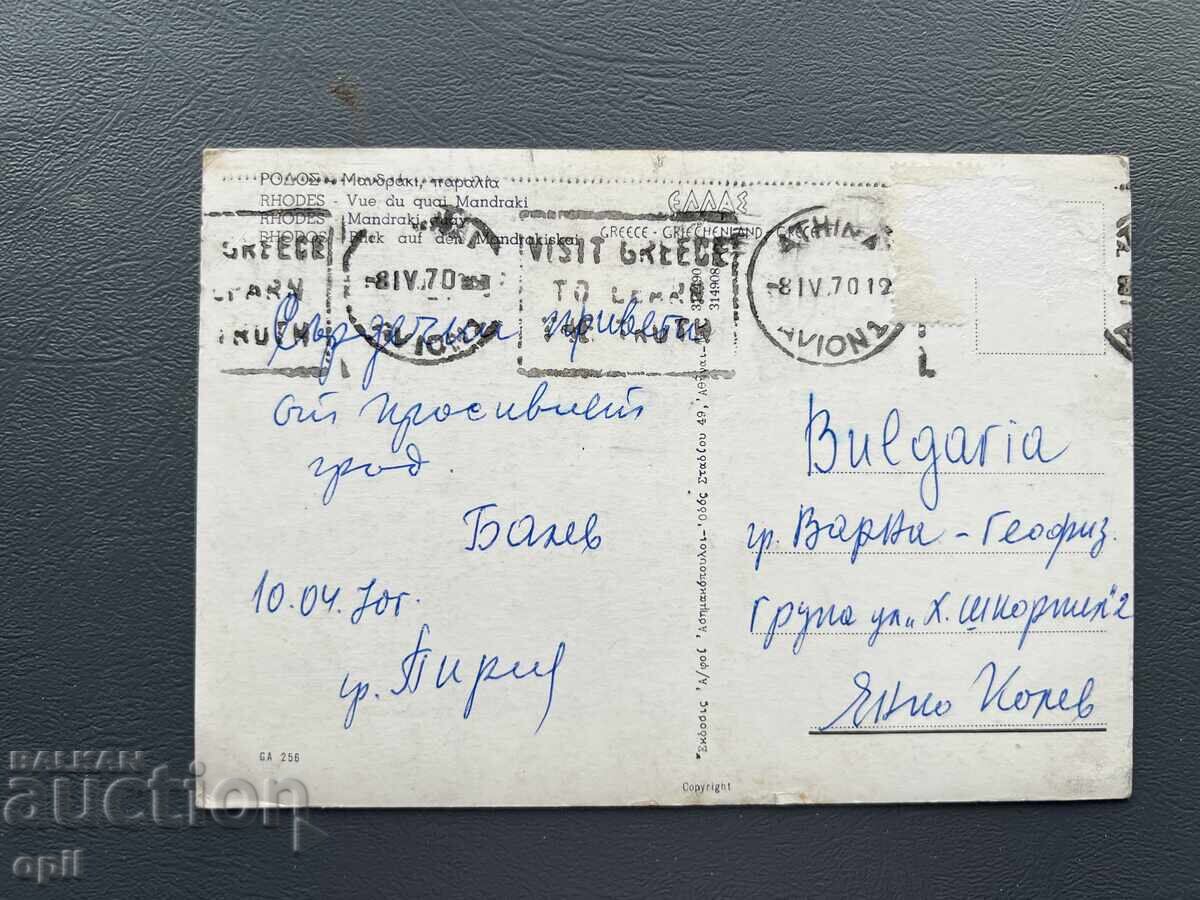 ΡΟΔΟΣ - Μανδράκι, παραλία
RHODES - Vue du quai Mandraki
RHODES - Mandraki quay
RHODOS - Blick auf den Mandrakiskai
ΕΛΛΑΣ
GREECE - GRIECHENLAND - GRECE
GREECE
LEARN
TRUTH
8 IV.70
VISIT GREECE
TO LEARN
THE TRUTH
ATHINAI
8 IV.70 12
AVION 2
Сърдечни привети
от красивият
град
Балев
10.04.70г.
гр.
GA 256
Έκδοσις Ἀφοί Ἀσημακόπουλοι - Ὁδός Σταδίου 49, Ἀθῆναι
314908
Copyright
Bulgaria
гр. Варна - Геофиз.
Група ул. „Х. Шкорпил" 2
Янко Колев
BALKAN
auction
opll